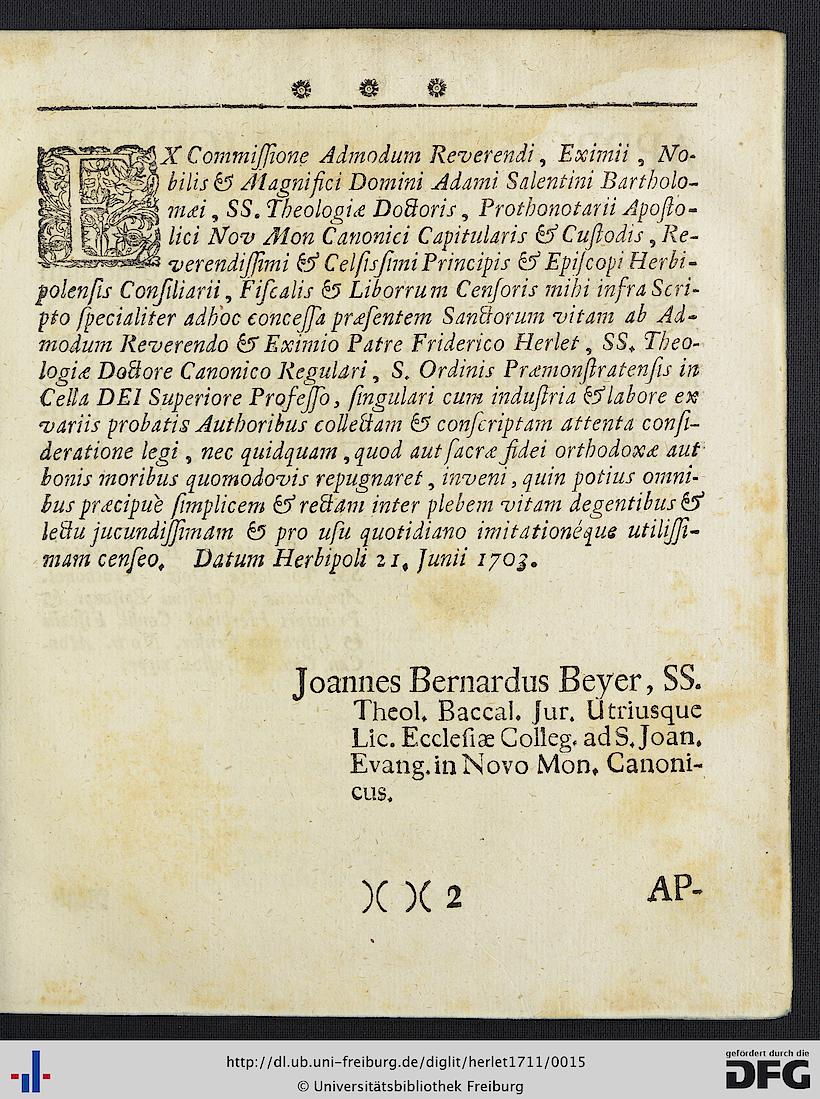 EX Commiſſione Admodum Reverendi, Eximii, No-
bilis & Magnifici Domini Adami Salentini Bartholo-
mæi, SS. Theologiæ Doctoris, Prothonotarii Apoſto-
lici Nov Mon Canonici Capitularis & Cuſtodis, Re-
verendiſſimi & Celſisſimi Principis & Epiſcopi Herbi-
polenſis Conſiliarii, Fiſcalis & Liborrum Cenſoris mihi infra Scri-
pto ſpecialiter adhoc conceſſa præſentem Sanctorum vitam ab Ad-
modum Reverendo & Eximio Patre Friderico Herlet, SS. Theo-
logiæ Doctore Canonico Regulari, S. Ordinis Præmonſtratenſis in
Cella DEI Superiore Profeſſo, ſingulari cum induſtria & labore ex
variis probatis Authoribus collectam & conſcriptam attenta conſi-
deratione legi, nec quidquam, quod aut ſacræ fidei orthodoxæ aut
bonis moribus quomodovis repugnaret, inveni, quin potius omni-
bus præcipuè ſimplicem & rectam inter plebem vitam degentibus &
lectu jucundiſſimam & pro uſu quotidiano imitationéque utiliſſi-
mam cenſeo. Datum Herbipoli 21. Junii 1703.
Joannes Bernardus Beyer, SS.
Theol. Baccal. Jur. Utriusque
Lic. Eccleſiæ Colleg. ad S. Joan.
Evang. in Novo Mon. Canoni-
cus.
)( )( 2 AP-
http://dl.ub.uni-freiburg.de/diglit/herlet1711/0015
© Universitätsbibliothek Freiburg
gefördert durch die
DFG